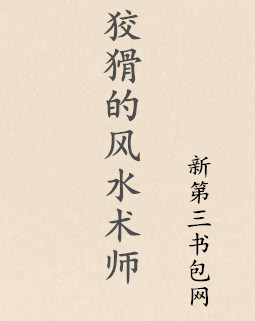 狡猾的风水术师
新第三书包网